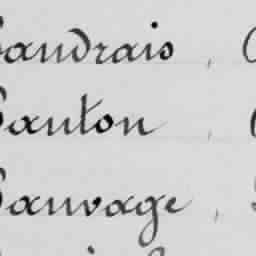 Saudrais ,
Sauton ,
Sauvage ,